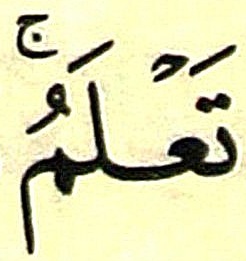 تَعْلَمُۚ